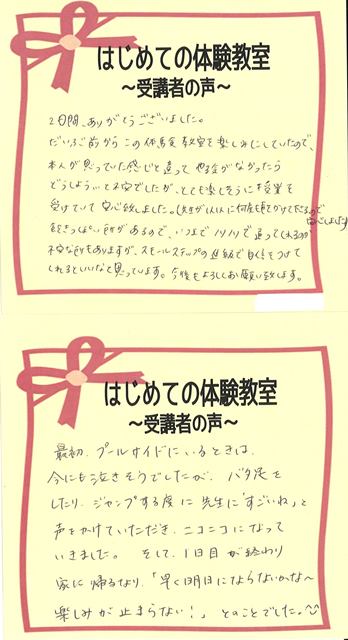 はじめての体験教室
～受講者の声～
2日間、ありがとうございました。
だいぶ前からこの体験教室を楽しみにしていたので、
本人が思っていた感じと違ってやる気がなかったら
どうしよう…と不安でしたが、とても楽しそうに授業を
受けていて安心致しました。(先生がM以に何度も声をかけて下さるので
安心しました)
飽きっぽい所があるので、いつまでノリノリで通ってくれるのか
不安な所もありますが、スモールステップの進級で自信をつけて
くれるといいなと思っています。今後もよろしくお願い致します。
はじめての体験教室
～受講者の声～
最初、プールサイドにいるときは、
今にも泣きそうでしたが、バタ足を
したり、ジャンプする度に先生に「すごいね」と
声をかけていただき、ニコニコになって
いきました。そして、1日目が終わり
家に帰るなり、「早く明日にならないかな～
楽しみが止まらない!」とのことでした。